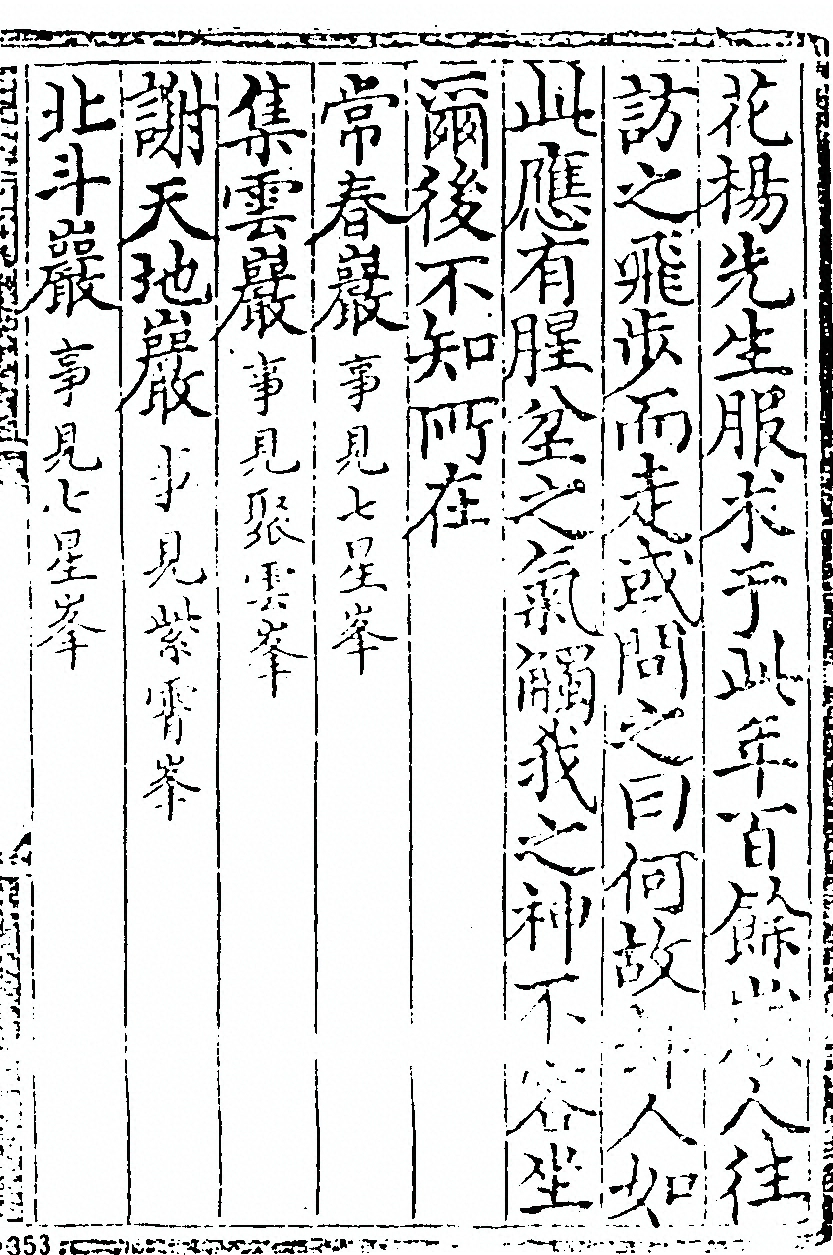 花楊先生服求于此年百餘歲人往
訪之飛步而走或問之曰何故人如
此應有腥坌之氣觸我之神不容坐
爾後不知所在
常春巖事見七星峯
集雲巖事見聚雲峯
謝天地巖事見紫霄峯
北斗巖事見七星峯
353